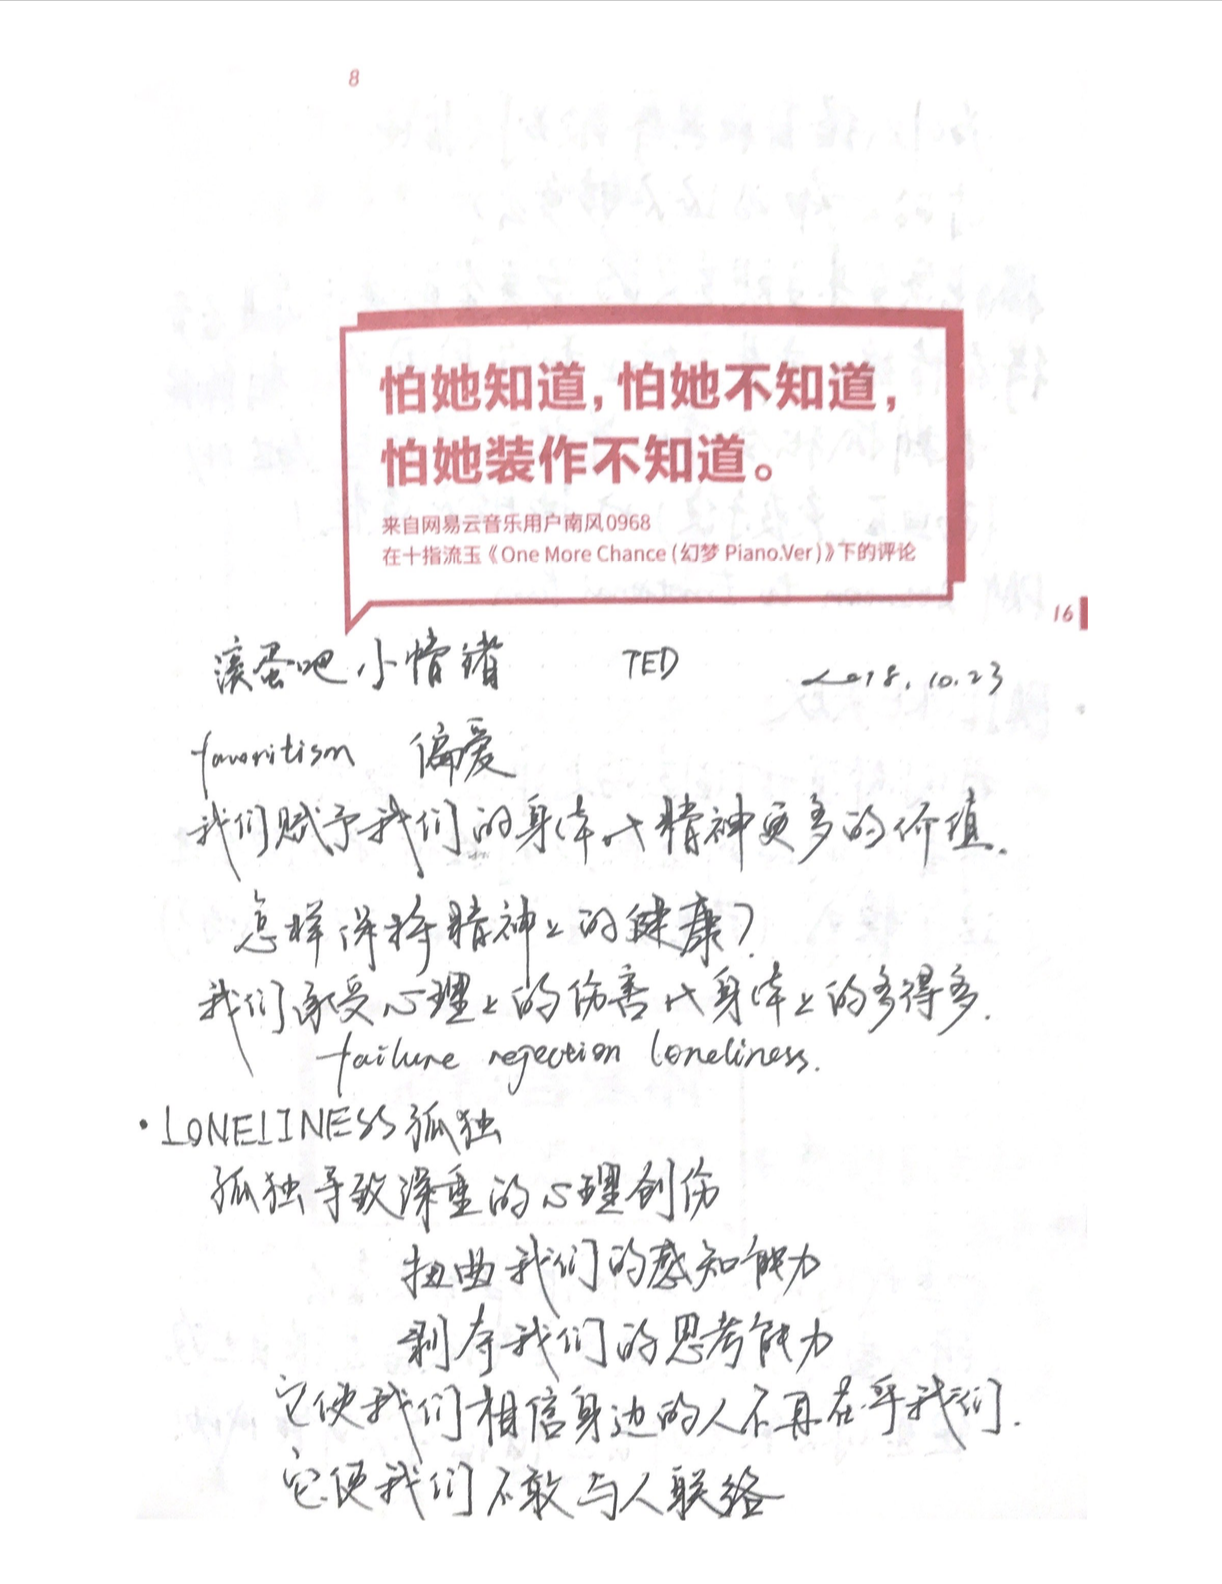 8
怕她知道，怕她不知道，
怕她装作不知道。
来自网易云音乐用户南风0968
在十指流玉《One More Chance (幻梦 Piano.Ver)》下的评论
16
滚蛋吧小情绪 TED 2018.10.23
favoritism 偏爱
我们赋予我们的身体比精神更多的价值.
怎样保持精神上的健康?
我们承受心理上的伤害比身体上的多得多.
failure rejection loneliness.
·LONELINESS 孤独
孤独导致深重的心理创伤
扭曲我们的感知能力
剥夺我们的思考能力
它使我们相信身边的人不再在乎我们.
它使我们不敢与人联络